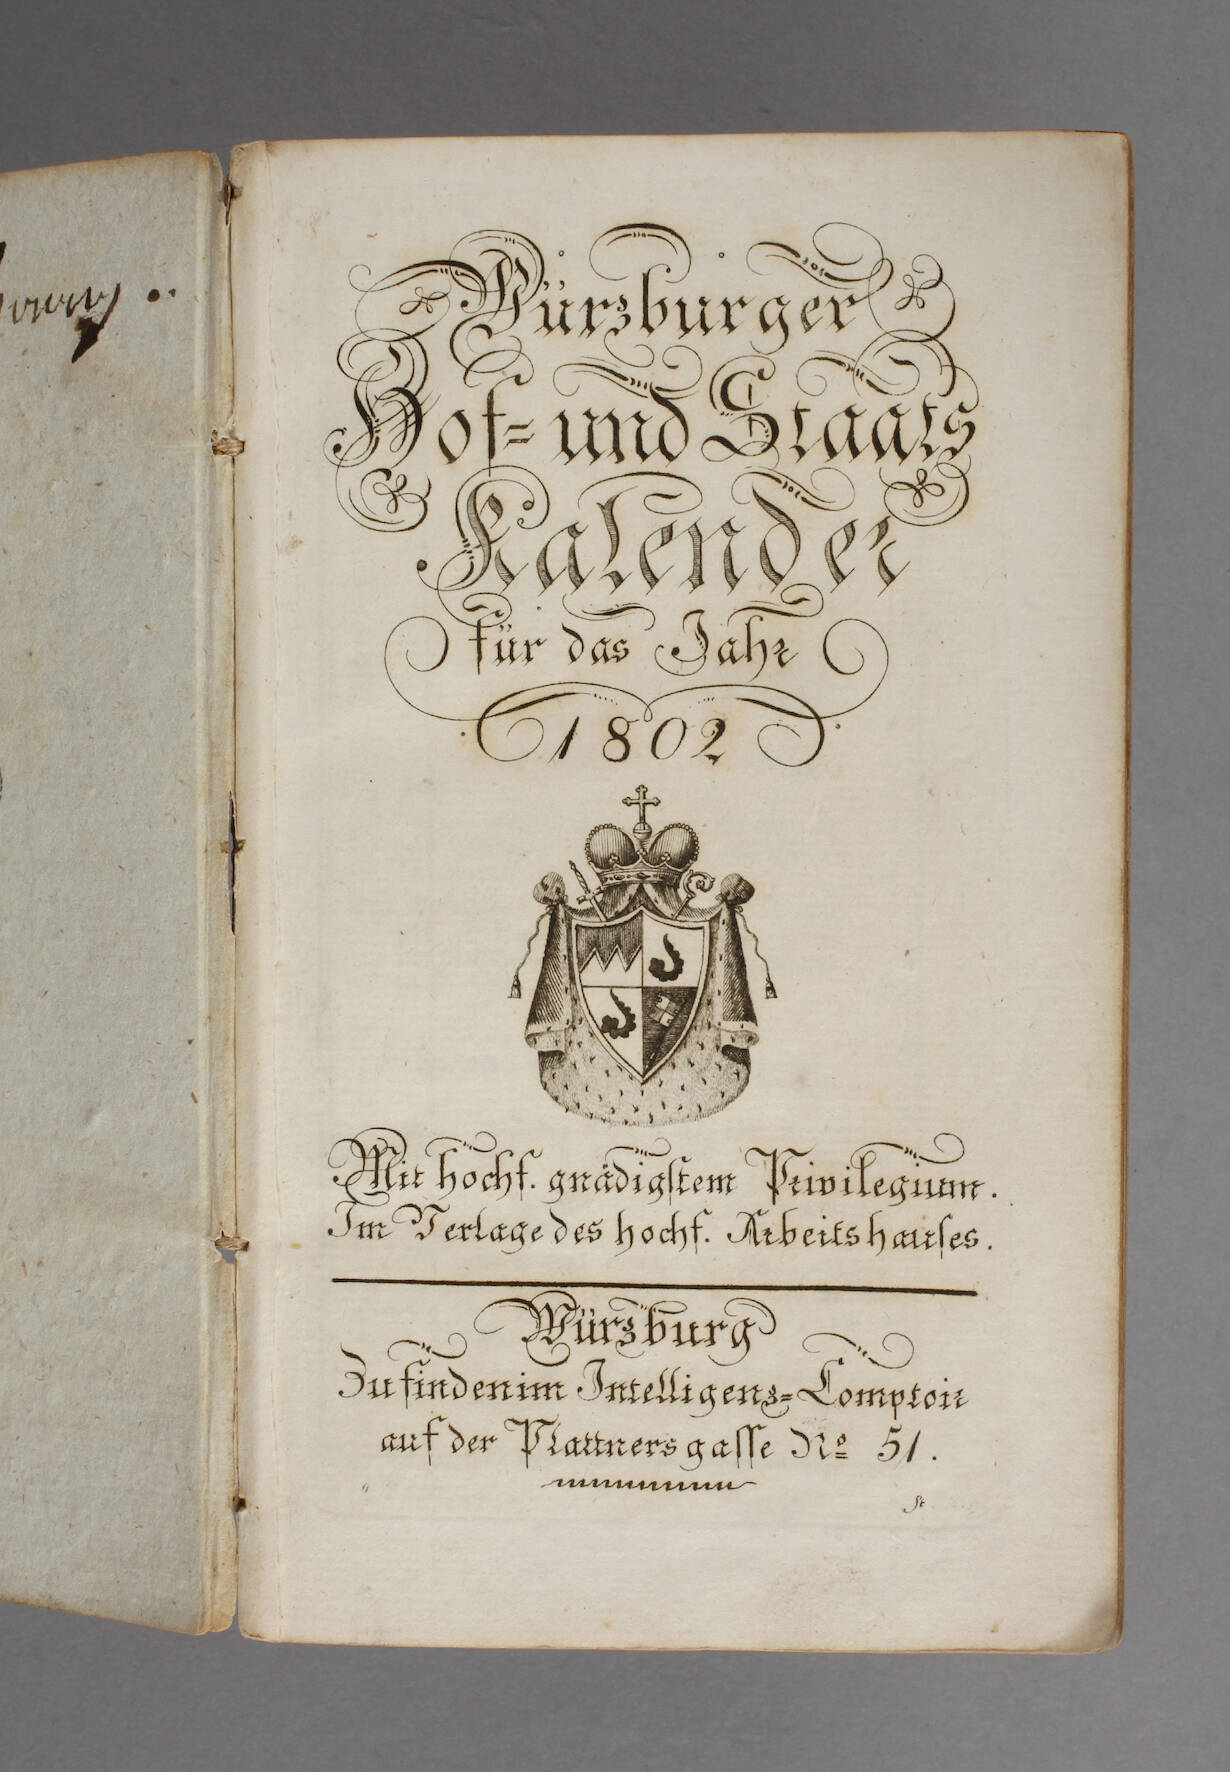 Würzburger
Hof= und Staats
Kalender
für das Jahr
1802
Mit hochf. gnädigstem Privilegium.
Im Verlage des hochf. Arbeitshauses.
Würzburg
Zu finden im Intelligenz=Comptoir
auf der Plattnersgasse No 51.
St